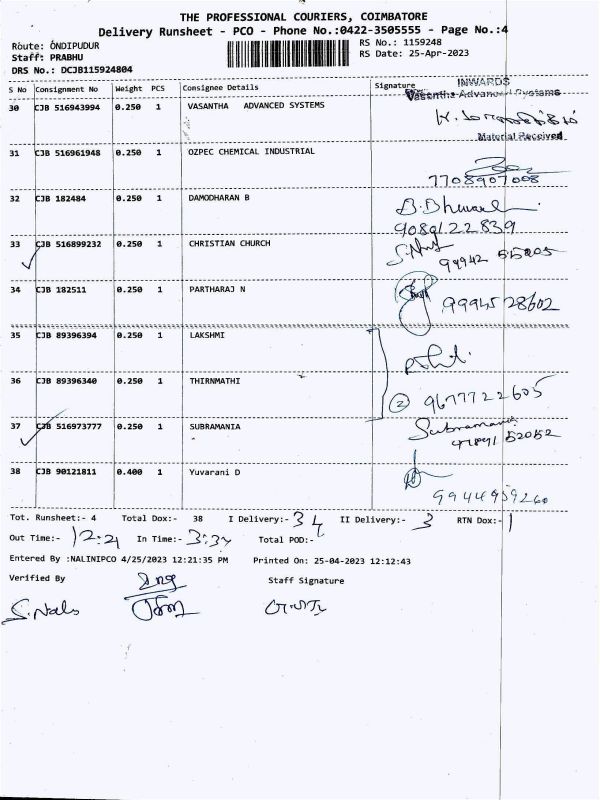 THE PROFESSIONAL COURIERS, COIMBATORE
Delivery Runsheet - PCO - Phone No.:0422-3505555 - Page No.:4
Route: ONDIPUDUR
RS No.: 1159248
Staff: PRABHU
RS Date: 25-Apr-2023
DRS No.: DCJB115924804
S No Consignment No Weight PCS Consignee Details Signature
INWARDS
Vasantha Advanced Systems
30 CJB 516943994 0.250 1 VASANTHA ADVANCED SYSTEMS
Material Received
31 CJB 516961948 0.250 1 OZPEC CHEMICAL INDUSTRIAL
7708907008
32 CJB 182484 0.250 1 DAMODHARAN B
9089122839
33 CJB 516899232 0.250 1 CHRISTIAN CHURCH
99942 55205
34 CJB 182511 0.250 1 PARTHARAJ N
9994528602
35 CJB 89396394 0.250 1 LAKSHMI
36 CJB 89396340 0.250 1 THIRNMATHI
2 9677722605
37 CJB 516973777 0.250 1 SUBRAMANIA Subramania
52052
38 CJB 90121811 0.400 1 Yuvarani D
9944959260
Tot. Runsheet:- 4 Total Dox:- 38 I Delivery:- 34 II Delivery:- 3 RTN Dox:- 1
Out Time:- 12:21 In Time:- 3:37 Total POD:-
Entered By :NALINIPCO 4/25/2023 12:21:35 PM Printed On: 25-04-2023 12:12:43
Verified By Staff Signature